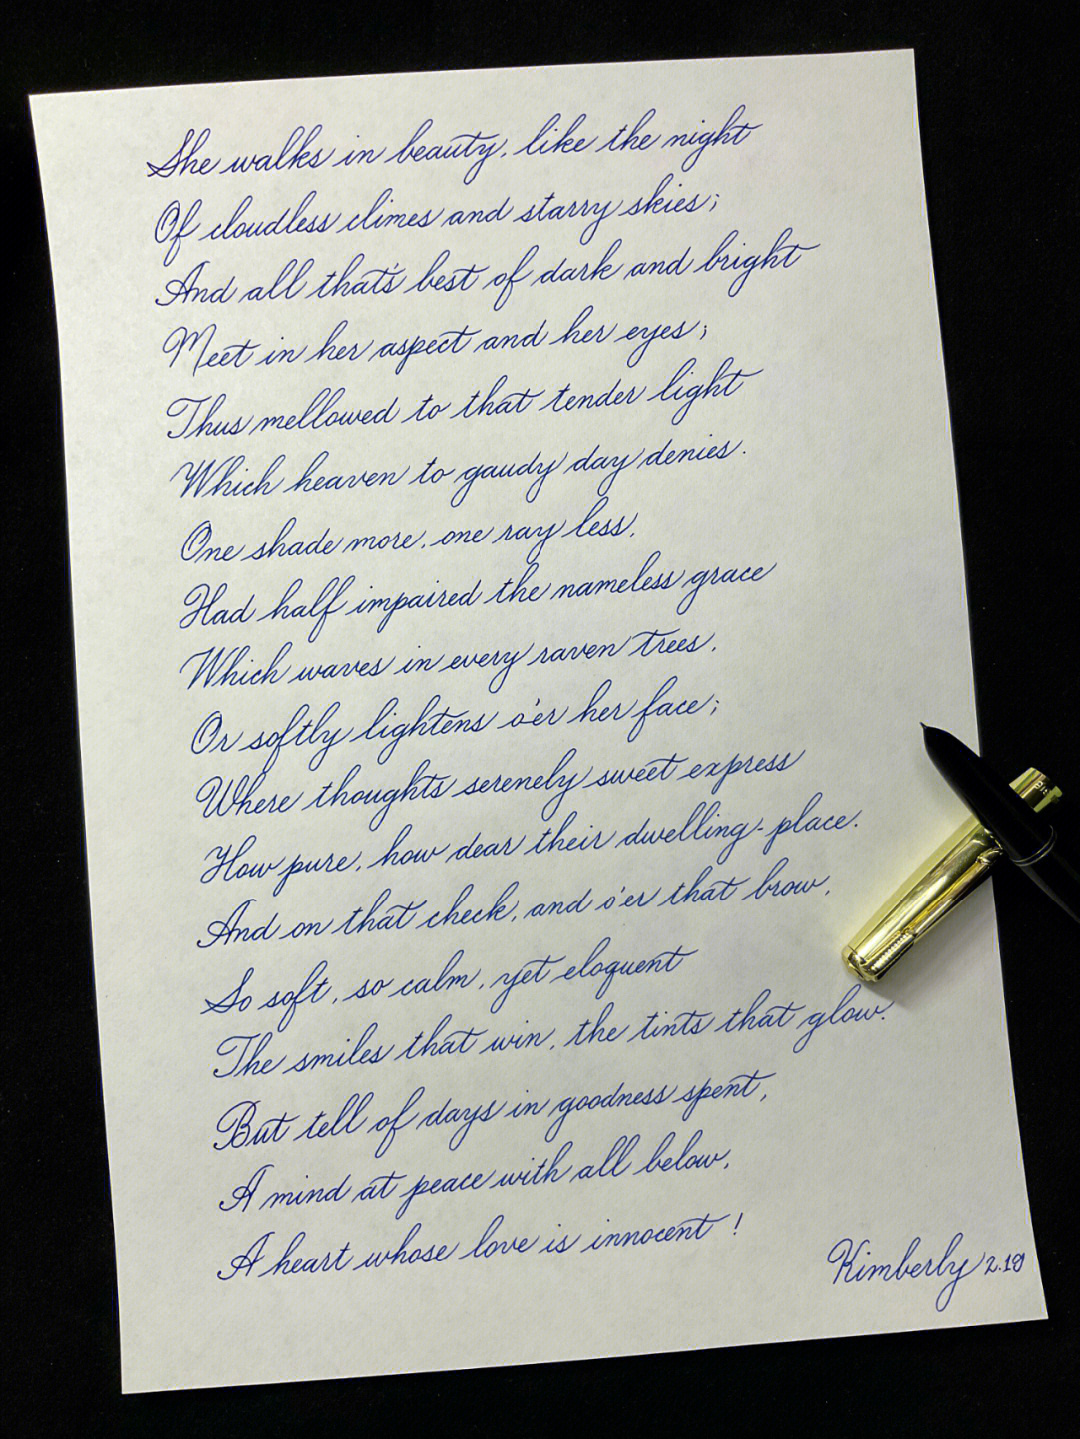 She walks in beauty, like the night
Of cloudless climes and starry skies;
And all that's best of dark and bright
Meet in her aspect and her eyes;
Thus mellowed to that tender light
Which heaven to gaudy day denies.
One shade more, one ray less,
Had half impaired the nameless grace
Which waves in every raven trees,
Or softly lightens o'er her face;
Where thoughts serenely sweet express
How pure, how dear their dwelling-place.
And on that check, and o'er that brow,
So soft, so calm, yet eloquent
The smiles that win, the tints that glow.
But tell of days in goodness spent,
A mind at peace with all below,
A heart whose love is innocent!
Kimberly 2.19